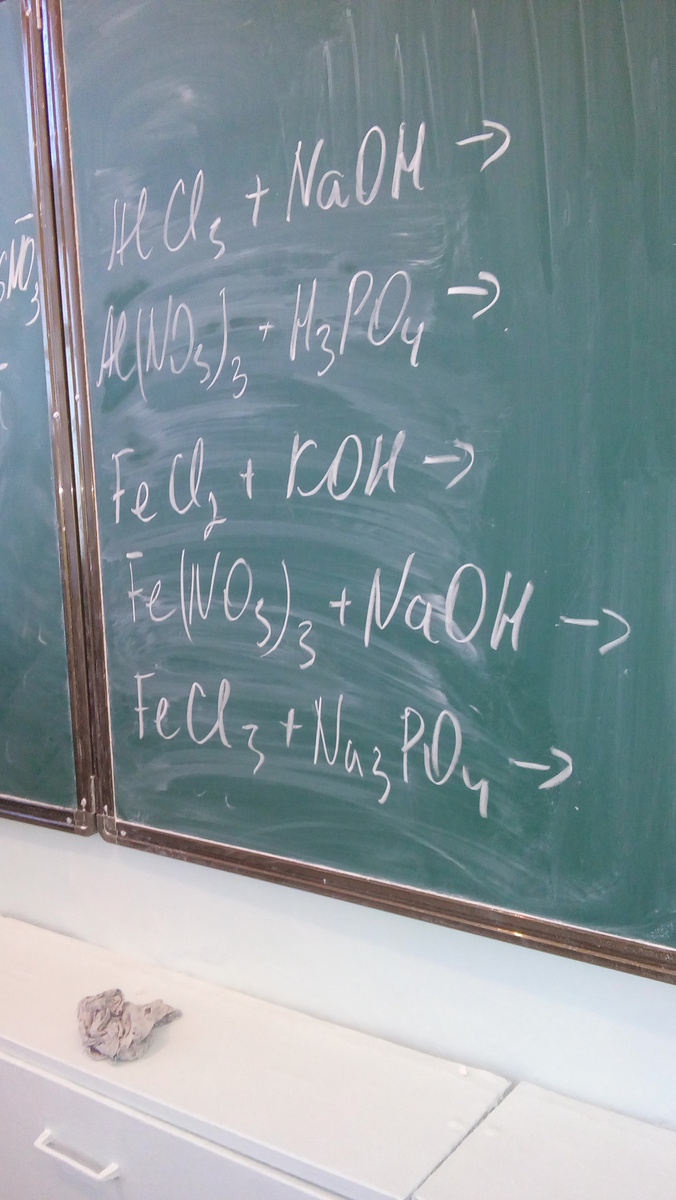 AlCl₃ + NaOH →
Al(NO₃)₃ + H₃PO₄ →
FeCl₂ + KOH →
Fe(NO₃)₃ + NaOH →
FeCl₃ + Na₃PO₄ →